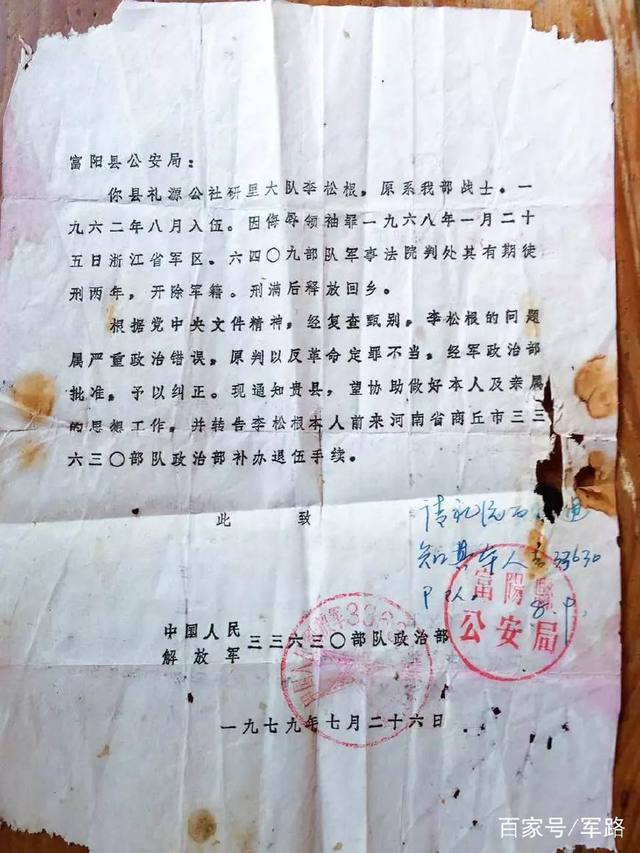 富阳县公安局：
你县礼源公社研里大队李松根，原系我部战士。一
九六二年八月入伍。因侮辱领袖罪一九六八年一月二十
五日浙江省军区。六四〇九部队军事法院判处其有期徒
刑两年，开除军籍。刑满后释放回乡。
根据党中央文件精神，经复查甄别，李松根的问题
属严重政治错误，原判以反革命定罪不当，经军政治部
批准，予以纠正。现通知贵县，望协助做好本人及亲属
的思想工作，并转告李松根本人前来河南省商丘市三三
六三〇部队政治部补办退伍手续。
此 致
请礼源 通
知其本人去33630
部队。 8.9.
富陽縣
公安局
中国人民
解放军 三三六三〇部队政治部
一九七九年七月二十六日
百家号/军路